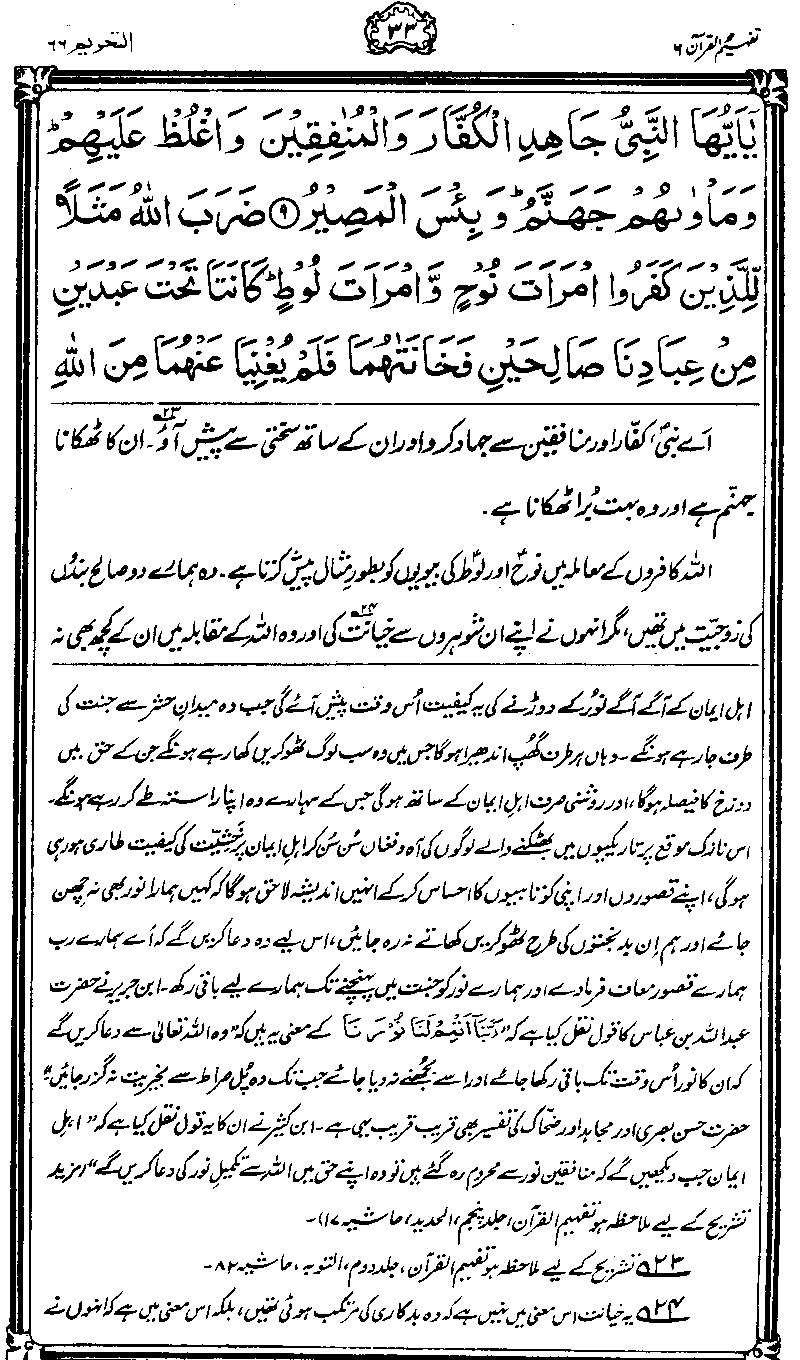 تفہیم القرآن ۶
۳۳
التحریم ۶۶
يٰۤاَيُّهَا النَّبِيُّ جَاهِدِ الْكُفَّارَ وَالْمُنٰفِقِيْنَ وَاغْلُظْ عَلَيْهِمْ ؕ
وَمَاْوٰىهُمْ جَهَنَّمُ ؕ وَبِئْسَ الْمَصِيْرُ ۹ ضَرَبَ اللّٰهُ مَثَلًا
لِّلَّذِيْنَ كَفَرُوا امْرَاَتَ نُوْحٍ وَّامْرَاَتَ لُوْطٍ ؕ كَانَتَا تَحْتَ عَبْدَيْنِ
مِنْ عِبَادِنَا صَالِحَيْنِ فَخَانَتٰهُمَا فَلَمْ يُغْنِيَا عَنْهُمَا مِنَ اللّٰهِ
اَے نبیؐ، کفّار اور منافقین سے جہاد کرو اور ان کے ساتھ سختی سے پیش آؤ۲۳۔ ان کا ٹھکانا
جہنّم ہے اور وہ بہت بُرا ٹھکانا ہے۔
اللہ کافروں کے معاملہ میں نوحؑ اور لوطؑ کی بیویوں کو بطورِ مثال پیش کرتا ہے۔ وہ ہمارے دو صالح بندوں
کی زوجیّت میں تھیں، مگر انہوں نے اپنے ان شوہروں سے خیانت۲۴ کی اور وہ اللہ کے مقابلہ میں ان کے کچھ بھی نہ
اہل ایمان کے آگے آگے نُور کے دوڑنے کی یہ کیفیت اُس وقت پیش آئے گی جب وہ میدانِ حشر سے جنت کی
طرف جارہے ہونگے۔ وہاں ہر طرف گھُپ اندھیرا ہوگا جس میں وہ سب لوگ ٹھوکریں کھا رہے ہونگے جن کے حق میں
دوزخ کا فیصلہ ہوگا، اور روشنی صرف اہلِ ایمان کے ساتھ ہوگی جس کے سہارے وہ اپنا راستہ طے کر رہے ہونگے۔
اس نازک موقع پر تاریکیوں میں بھٹکنے والے لوگوں کی آہ و فغاں سُن سُن کر اہلِ ایمان پر خشیّت کی کیفیت طاری ہو رہی
ہوگی، اپنے قصوروں اور اپنی کوتاہیوں کا احساس کر کے انہیں اندیشہ لاحق ہوگا کہ کہیں ہمارا نور بھی نہ چھن
جائے اور ہم اِن بدبختوں کی طرح ٹھوکریں کھاتے نہ رہ جائیں، اس لیے وہ دعا کریں گے کہ اے ہمارے رب
ہمارے قصور معاف فرما دے اور ہمارے نور کو جنت میں پہنچنے تک ہمارے لیے باقی رکھ۔ ابن جریر نے حضرت
عبداللہ بن عباس کا قول نقل کیا ہے کہ ”رَبَّنَا اَتْمِمْ لَنَا نُوْرَنَا کے معنی یہ ہیں کہ“ وہ اللہ تعالیٰ سے دعا کریں گے
کہ ان کا نور اُس وقت تک باقی رکھا جائے اور اسے بُجھنے نہ دیا جائے جب تک وہ پُل صراط سے بخیریت نہ گزر جائیں“
حضرت حسن بصری اور مجاہد اور ضحّاک کی تفسیر بھی قریب قریب یہی ہے۔ ابن کثیر نے ان کا یہ قول نقل کیا ہے کہ ”اہل
ایمان جب دیکھیں گے کہ منافقین نور سے محروم رہ گئے ہیں تو وہ اپنے حق میں اللہ سے تکمیلِ نور کی دعا کریں گے“ (مزید
تشریح کے لیے ملاحظہ ہو تفہیم القرآن، جلد پنجم، الحدید، حاشیہ ۱۷)۔
۲۳ تشریح کے لیے ملاحظہ ہو تفہیم القرآن، جلد دوم، التوبہ، حاشیہ ۸۲۔
۲۴ یہ خیانت اس معنی میں نہیں ہے کہ وہ بدکاری کی مرتکب ہوئی تھیں، بلکہ اس معنی میں ہے کہ انہوں نے